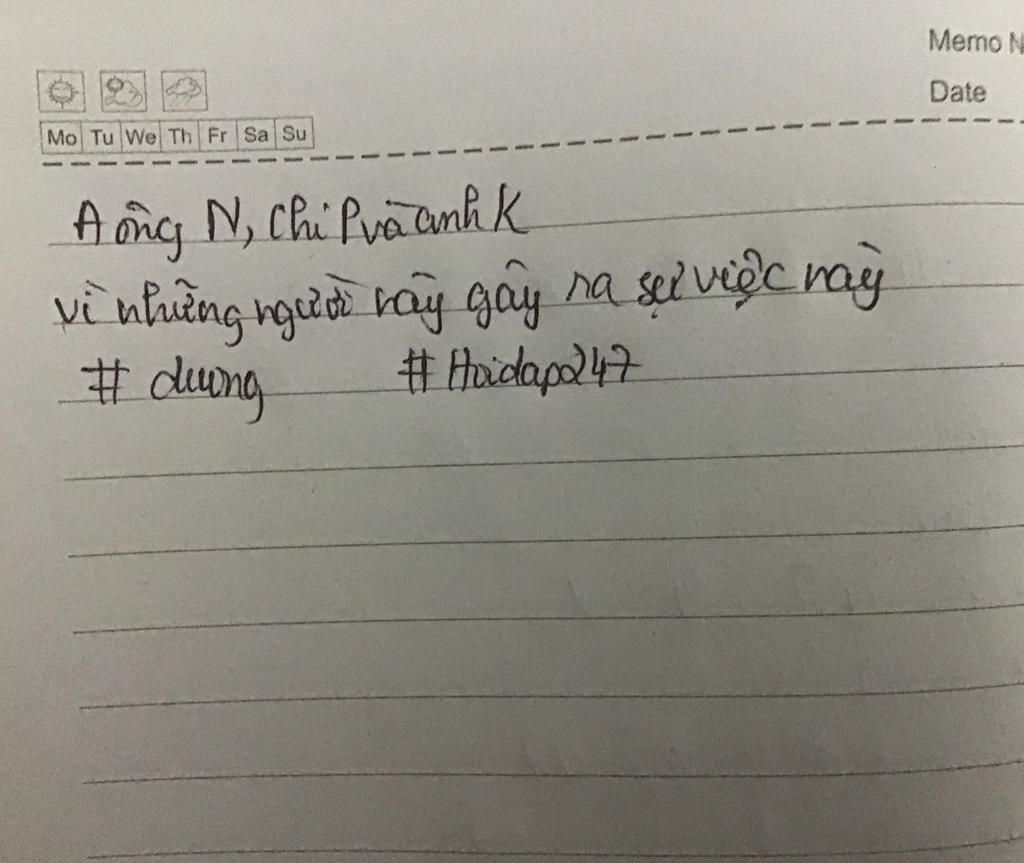 Memo N
Date
Mo Tu We Th Fr Sa Su
A ông N, chi P và anh K
vì những người này gây ra sự việc này
# duong #Hoidap247